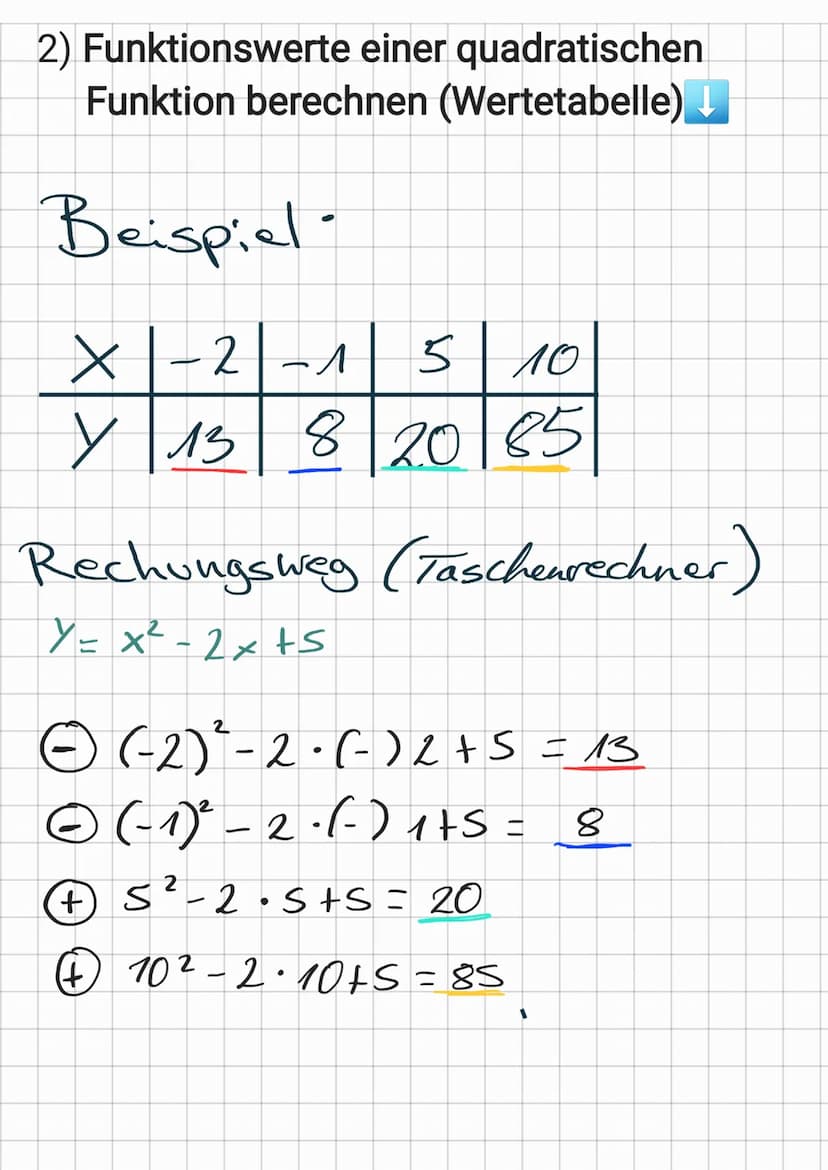 2) Funktionswerte einer quadratischen
Funktion berechnen (Wertetabelle)⬇️
Beispiel:
X | -2 | -1 | 5 | 10
Y | 13 | 8 | 20 | 85
Rechungsweg (Taschenrechner)
y = x² - 2x + 5
⊖ (-2)² - 2 · (-) 2 + 5 = 13
⊖ (-1)² - 2 · (-) 1 + 5 = 8
⊕ 5² - 2 · 5 + 5 = 20
⊕ 10² - 2 · 10 + 5 = 85